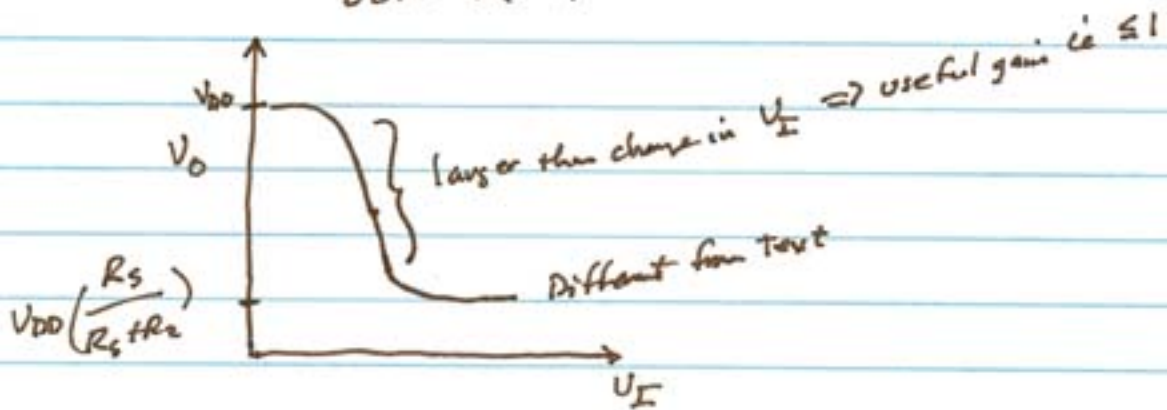 larger than change in V_I => useful gain ie ≤ 1
V_DD
V_O
Different from Text
V_DD(R_S/(R_S+R_2))
V_I